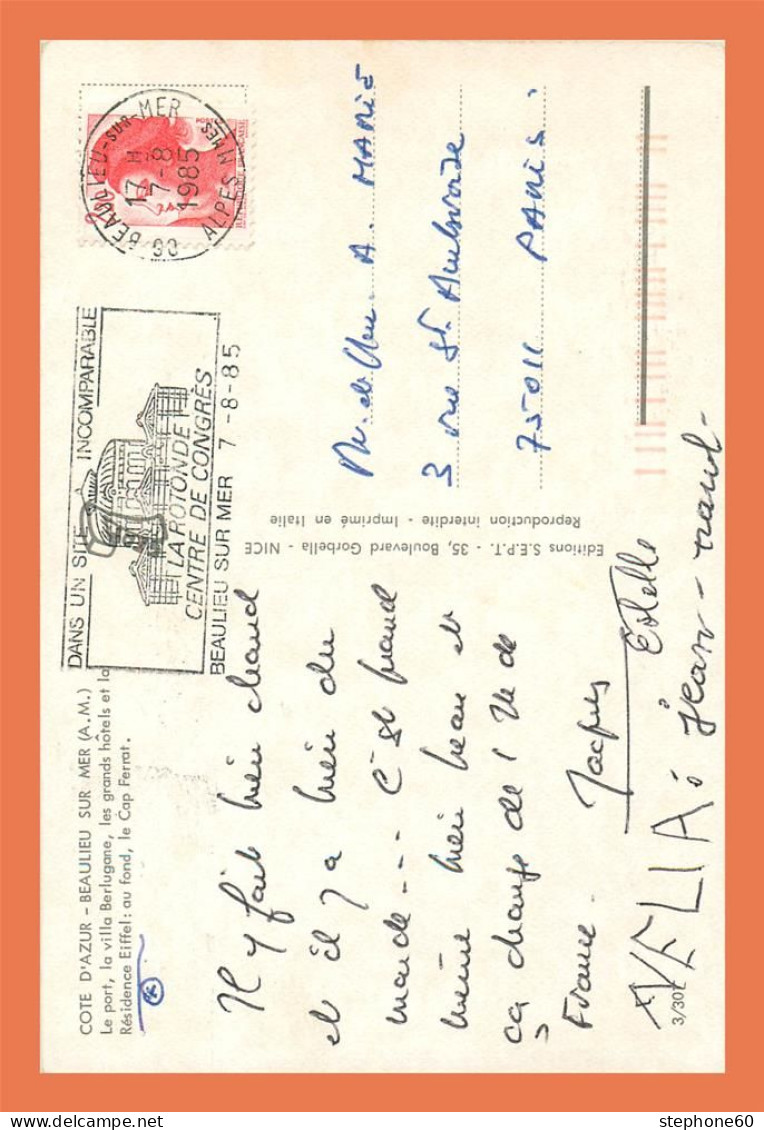 COTE D'AZUR - BEAULIEU SUR MER (A.M.)
Le port, la villa Berlugane, les grands hôtels et la
Résidence Eiffel: au fond, le Cap Ferrat.
Il y fait bien chaud
et il y a bien du
monde--- C'est quand
même bien beau et
ça change de l'Ile de
France.
Jacques
Estelle
VELIA
jean-
3/307
Editions S.E.P.T. - 35, Boulevard Gorbella - NICE
Reproduction interdite - Imprimé en Italie
DANS UN SITE INCOMPARABLE
LA ROTONDE
CENTRE DE CONGRÈS
BEAULIEU SUR MER 7-8-85
BEAULIEU-SUR-MER
17 H
7-8
1985
ALPES MMES
M. et Mme A. MARIE
3 rue St. Ambroise
75011 PARIS.
stephone60